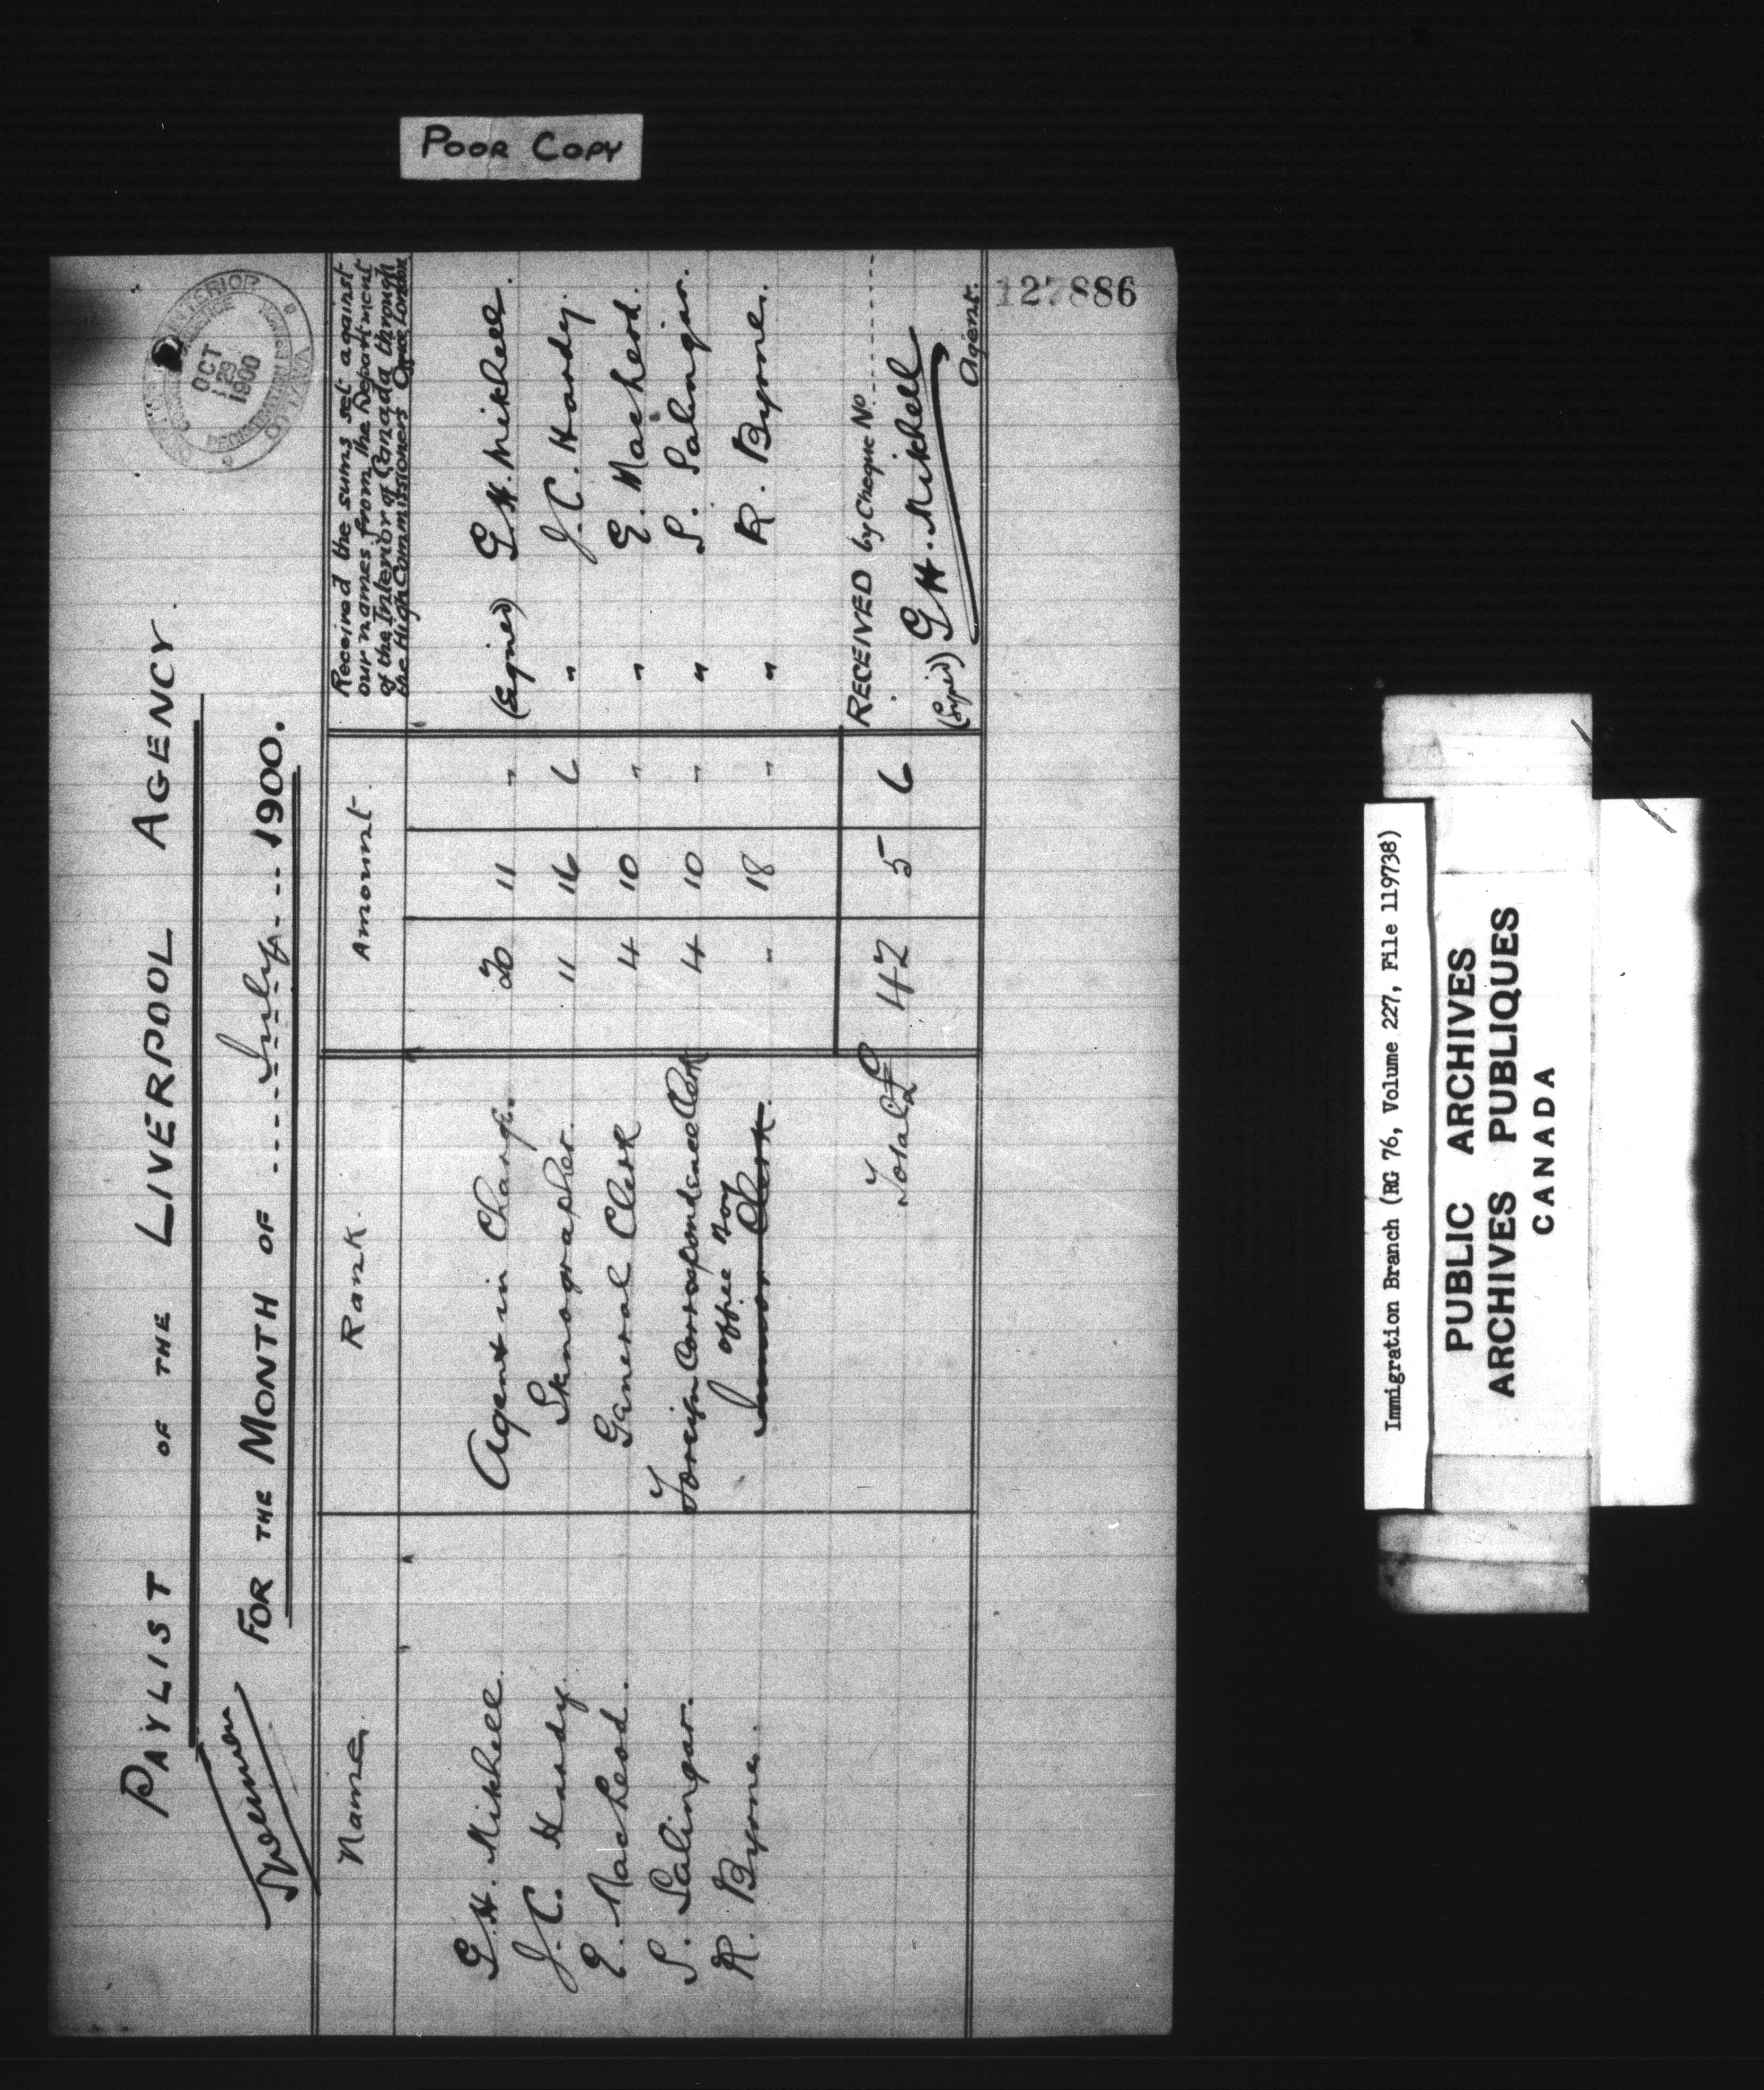 POOR COPY
PAYLIST OF THE LIVERPOOL AGENCY.
FOR THE MONTH OF July 1900.
OCT 29 1900
Name. Rank. Amount. Received the sums set against
our names from the Department
of the Interior of Canada through
the High Commissioners Office, London
G. H. Mitchell. Agent in Charge. 20 11 " (Signed) G. H. Mitchell.
J. C. Hardy. Stenographer. 11 16 6 " J. C. Hardy.
E. MacLeod. General Clerk 4 10 " " E. MacLeod.
S. Salinger. Foreign Correspondence Clerk 4 10 " " S. Salinger.
Office Boy
R. Byrne. Junior Clerk. " 18 " " R. Byrne.
Total £ 42 5 6 RECEIVED by Cheque No
(Signed) G. H. Mitchell
Agent.
127886
Immigration Branch (RG 76, Volume 227, File 119738)
PUBLIC ARCHIVES
ARCHIVES PUBLIQUES
CANADA